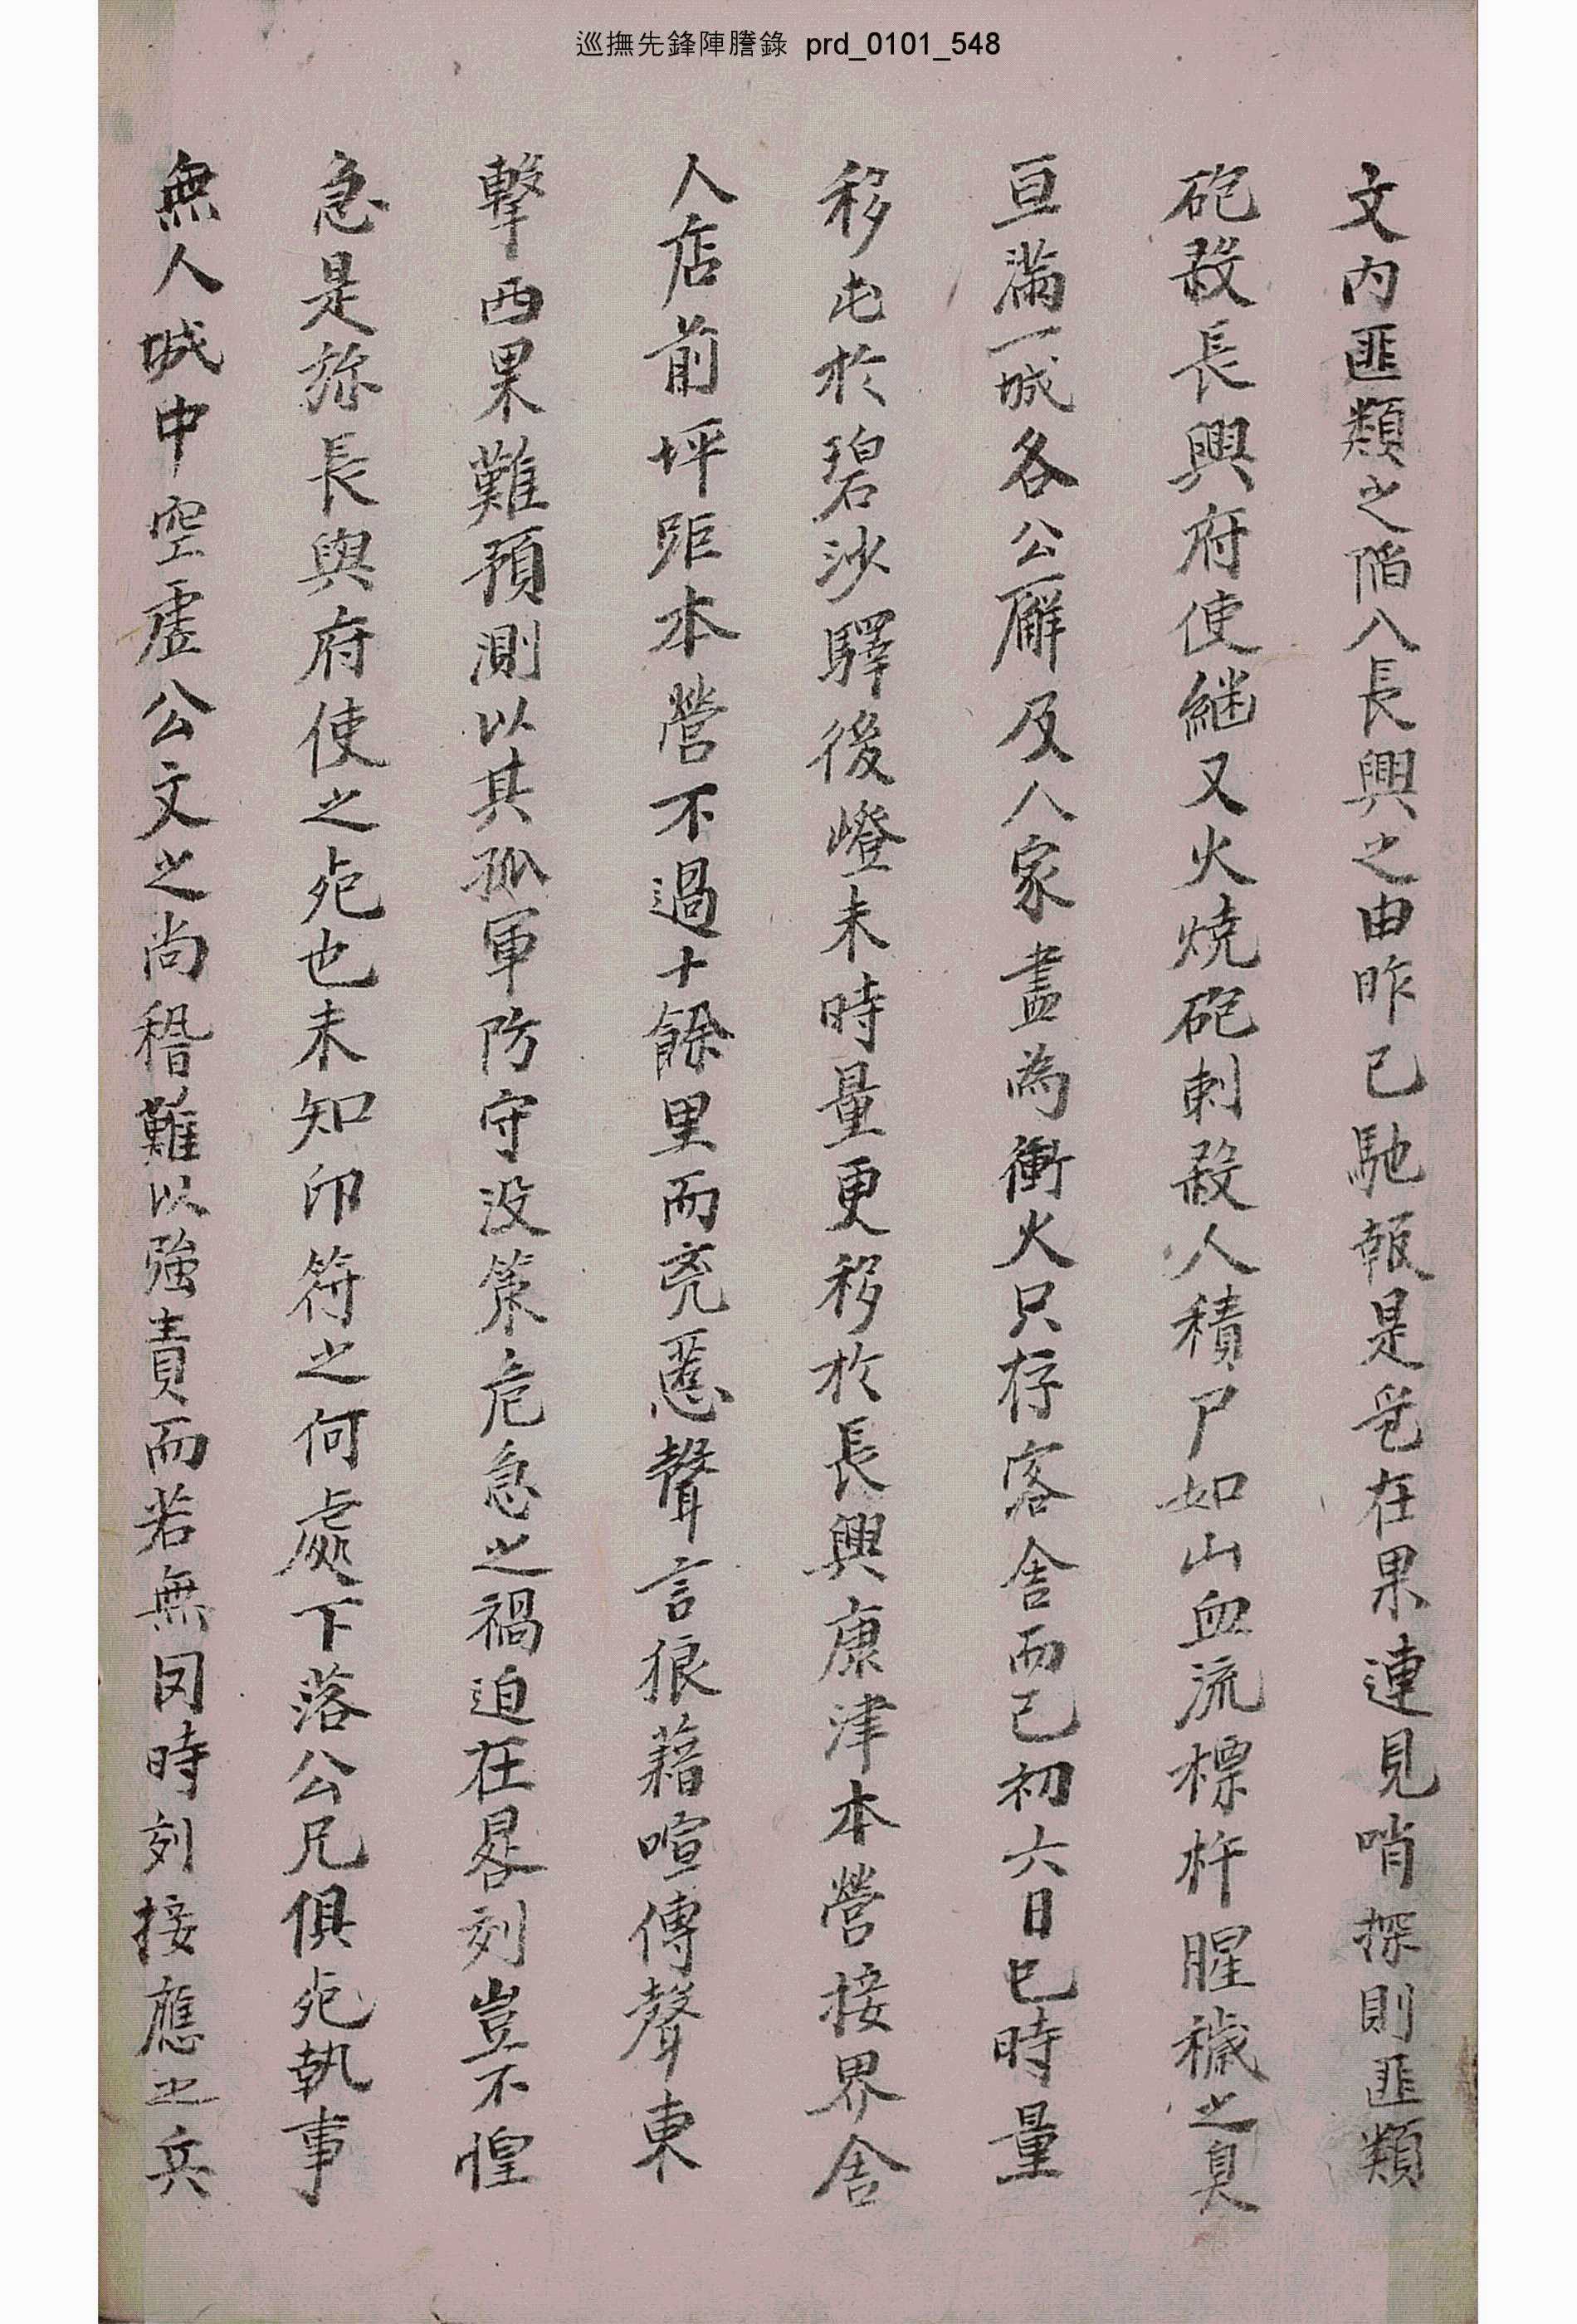 巡撫先鋒陣謄錄 prd_0101_548
文內匪類之陷入長興之由昨已馳報是乎在果連見哨探則匪類
砲殺長興府使継又火燒砲刺殺人積尸如山血流標杵腥穢之臭
亘滿一城各公廨及人家盡為衝火只存客舍而已初六日巳時量
移屯於碧沙驛後嶝未時量更移於長興康津本營接界舍
人店前坪距本營不過十餘里而兇慝聲言狼藉喧傳聲東
擊西果難預測以其孤軍防守沒策危急之禍迫在晷刻豈不惶
急是旀長興府使之死也未知印符之何處下落公兄俱死執事
無人城中空虛公文之尚稽難以強責而若無罔時刻接應之兵